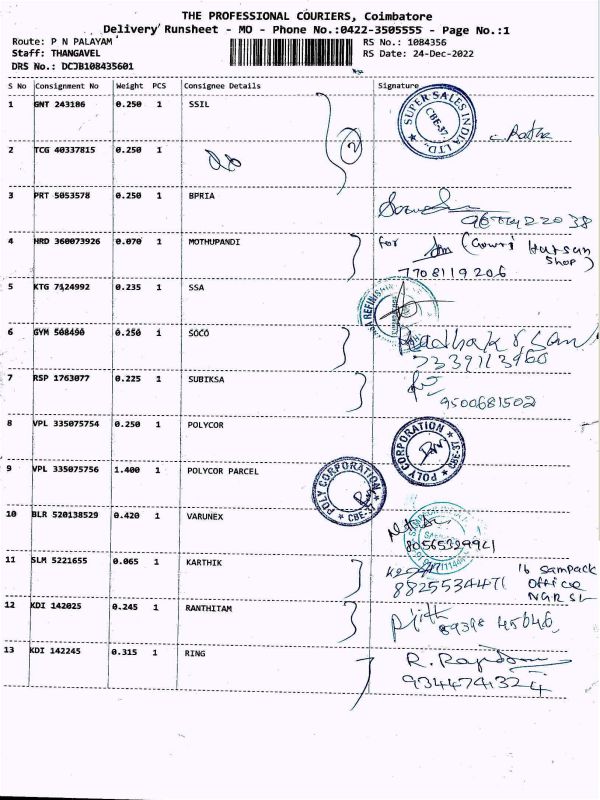 THE PROFESSIONAL COURIERS, Coimbatore
Delivery Runsheet - MO - Phone No.:0422-3505555 - Page No.:1
Route: P N PALAYAM RS No.: 1084356
Staff: THANGAVEL RS Date: 24-Dec-2022
DRS No.: DCJB108435601
S No Consignment No Weight PCS Consignee Details Signature
1 GNT 243186 0.250 1 SSIL
SUPER SALES INDIA LTD. CBE-37
2 TCG 40337815 0.250 1
2
3 PRT 5053578 0.250 1 BPRIA
4 HRD 360073926 0.070 1 MOTHUPANDI for (Gowri
Shop)
7708119206
5 KTG 7124992 0.235 1 SSA
6 GYM 508490 0.250 1 SOCO
7339113960
7 RSP 1763077 0.225 1 SUBIKSA
9500681502
8 VPL 335075754 0.250 1 POLYCOR
POLY CORPORATION CBE-37
9 VPL 335075756 1.400 1 POLYCOR PARCEL
POLY CORPORATION CBE-37
10 BLR 520138529 0.420 1 VARUNEX
11 SLM 5221655 0.065 1 KARTHIK
8825534471
sampack
office
12 KDI 142025 0.245 1 RANTHITAM
45646
13 KDI 142245 0.315 1 RING
9344741324